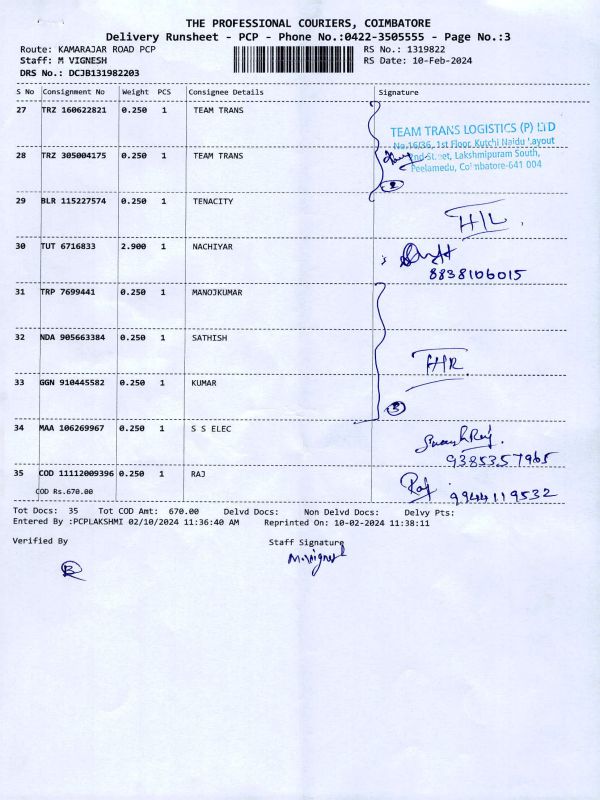 THE PROFESSIONAL COURIERS, COIMBATORE
Delivery Runsheet - PCP - Phone No.:0422-3505555 - Page No.:3
Route: KAMARAJAR ROAD PCP RS No.: 1319822
Staff: M VIGNESH RS Date: 10-Feb-2024
DRS No.: DCJB131982203
S No Consignment No Weight PCS Consignee Details Signature
27 TRZ 160622821 0.250 1 TEAM TRANS
TEAM TRANS LOGISTICS (P) LTD
No.16/36, 1st Floor, Kutchi Naidu Layout
28 TRZ 305004175 0.250 1 TEAM TRANS
2nd Street, Lakshmipuram South,
Peelamedu, Coimbatore-641 004
2
29 BLR 115227574 0.250 1 TENACITY
H/L
30 TUT 6716833 2.900 1 NACHIYAR
8838106015
31 TRP 7699441 0.250 1 MANOJKUMAR
32 NDA 905663384 0.250 1 SATHISH
33 GGN 910445582 0.250 1 KUMAR
3
34 MAA 106269967 0.250 1 S S ELEC
9385357965
35 COD 11112009396 0.250 1 RAJ
Raj 9944119532
COD Rs.670.00
Tot Docs: 35 Tot COD Amt: 670.00 Delvd Docs: Non Delvd Docs: Delvy Pts:
Entered By :PCPLAKSHMI 02/10/2024 11:36:40 AM Reprinted On: 10-02-2024 11:38:11
Verified By Staff Signature
M.Vignesh